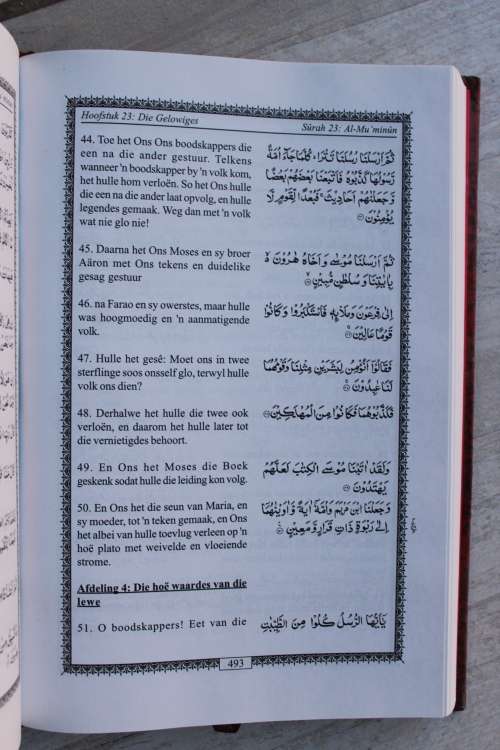 Hoofstuk 23: Die Gelowiges
Sûrah 23: Al-Mu'minûn
44. Toe het Ons Ons boodskappers die
een na die ander gestuur. Telkens
wanneer 'n boodskapper by 'n volk kom,
het hulle hom verloën. So het Ons hulle
die een na die ander laat opvolg, en hulle
legendes gemaak. Weg dan met 'n volk
wat nie glo nie!
ثُمَّ اَرْسَلْنَا رُسُلَنَا تَتْرَا ؕ كُلَّمَا جَآءَ اُمَّةً
رَّسُوْلُهَا كَذَّبُوْهُ فَاَتْبَعْنَا بَعْضَهُمْ بَعْضًا
وَّجَعَلْنٰهُمْ اَحَادِيْثَ ۚ فَبُعْدًا لِّقَوْمٍ لَّا
يُؤْمِنُوْنَ
45. Daarna het Ons Moses en sy broer
Aäron met Ons tekens en duidelike
gesag gestuur
ثُمَّ اَرْسَلْنَا مُوْسٰى وَاَخَاهُ هٰرُوْنَ ۙ
بِاٰيٰتِنَا وَسُلْطٰنٍ مُّبِيْنٍ
46. na Farao en sy owerstes, maar hulle
was hoogmoedig en 'n aanmatigende
volk.
اِلٰى فِرْعَوْنَ وَمَلَا۟ئِهٖ فَاسْتَكْبَرُوْا وَكَانُوْا
قَوْمًا عَالِيْنَ
47. Hulle het gesê: Moet ons in twee
sterflinge soos onsself glo, terwyl hulle
volk ons dien?
فَقَالُوْۤا اَنُؤْمِنُ لِبَشَرَيْنِ مِثْلِنَا وَقَوْمُهُمَا
لَنَا عٰبِدُوْنَ
48. Derhalwe het hulle die twee ook
verloën, en daarom het hulle later tot
die vernietigdes behoort.
فَكَذَّبُوْهُمَا فَكَانُوْا مِنَ الْمُهْلَكِيْنَ
49. En Ons het Moses die Boek
geskenk sodat hulle die leiding kon volg.
وَلَقَدْ اٰتَيْنَا مُوْسَى الْكِتٰبَ لَعَلَّهُمْ
يَهْتَدُوْنَ
50. En Ons het die seun van Maria, en
sy moeder, tot 'n teken gemaak, en Ons
het albei van hulle toevlug verleen op 'n
hoë plato met weivelde en vloeiende
strome.
وَجَعَلْنَا ابْنَ مَرْيَمَ وَاُمَّهٗۤ اٰيَةً وَّاٰوَيْنٰهُمَاۤ
اِلٰى رَبْوَةٍ ذَاتِ قَرَارٍ وَّمَعِيْنٍ
Afdeling 4: Die hoë waardes van die
lewe
51. O boodskappers! Eet van die
يٰۤاَيُّهَا الرُّسُلُ كُلُوْا مِنَ الطَّيِّبٰتِ
493